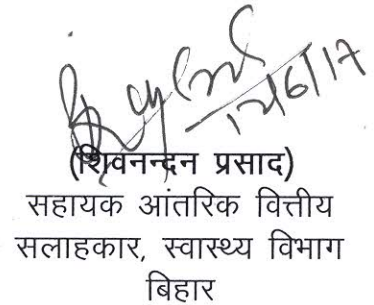 12/6/17
(शिवनन्दन प्रसाद)
सहायक आंतरिक वित्तीय
सलाहकार, स्वास्थ्य विभाग
बिहार